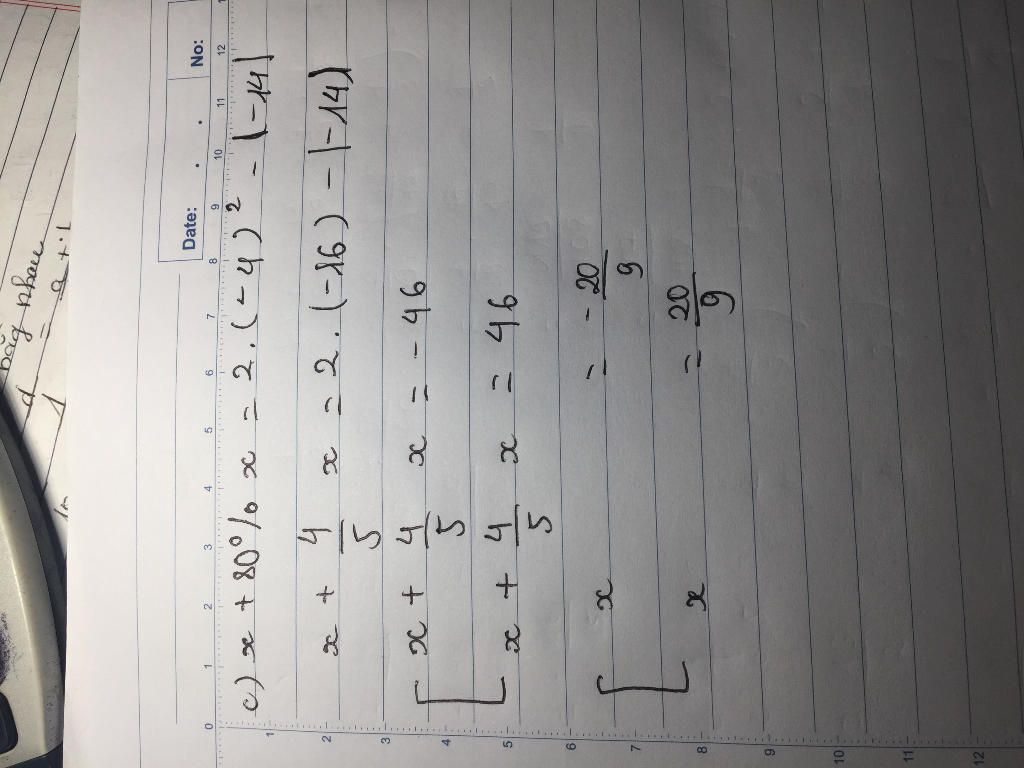 No:
Date: . .
c) x + 80% x = 2.(-4)² - |-14|
x + 4/5 x = 2.(-16) - |-14|
[ x + 4/5 x = -46
x + 4/5 x = 46
[ x = -20/9
x = 20/9
0 1 2 3 4 5 6 7 8 9 10 11 12
1
2
3
4
5
6
7
8
9
10
11
12
bằng nhau